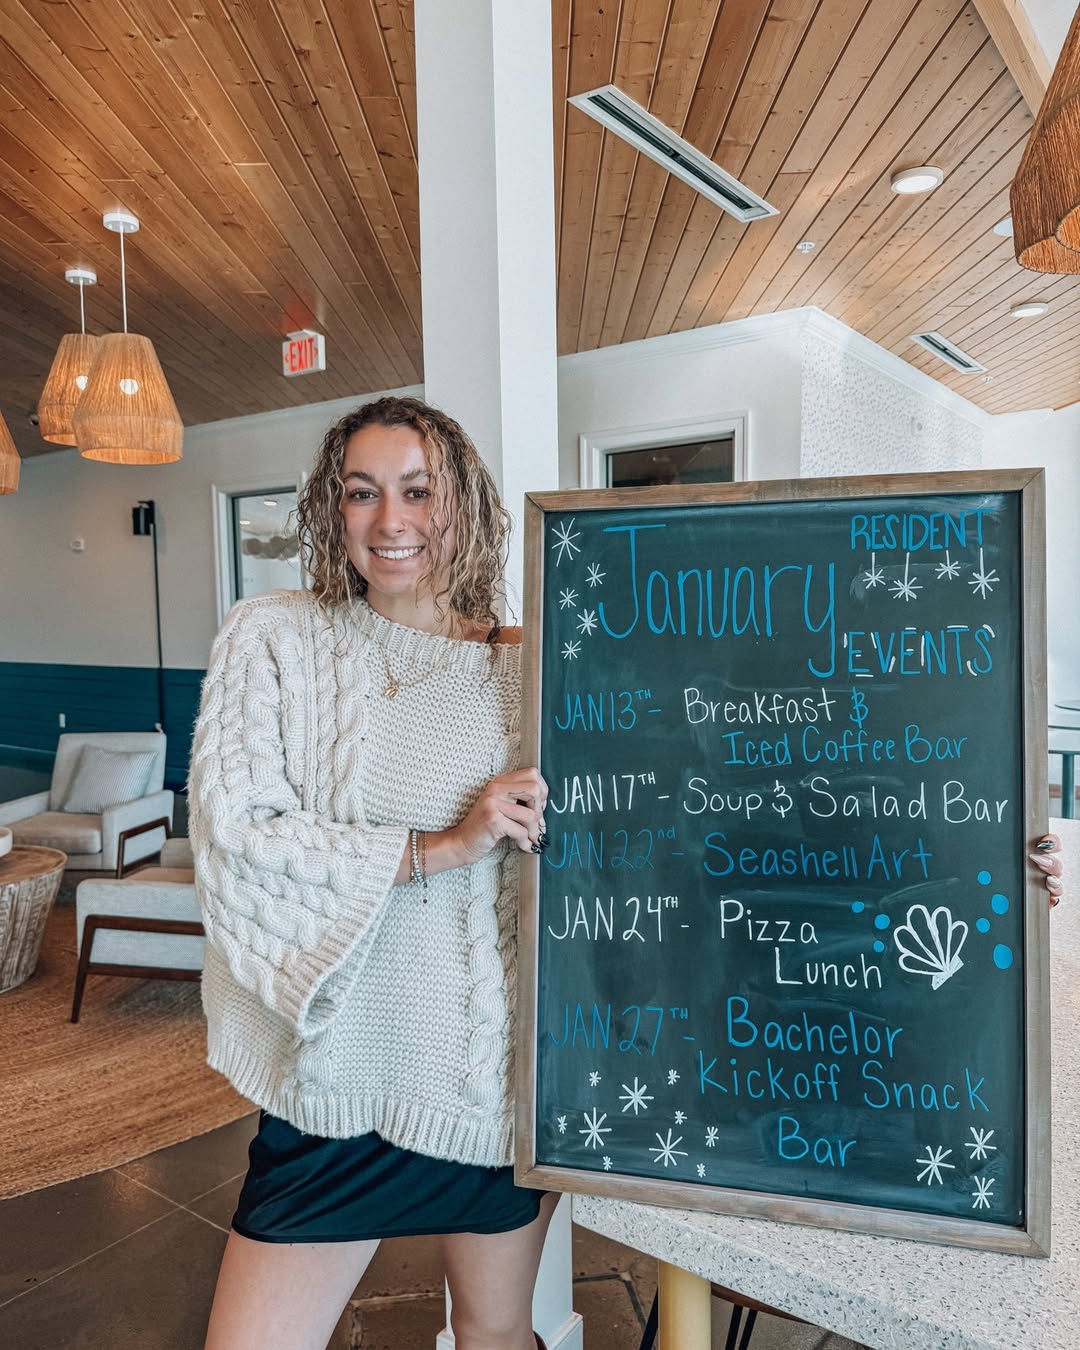 EXIT
RESIDENT
January
EVENTS
JAN 13TH - Breakfast &
Iced Coffee Bar
JAN 17TH - Soup & Salad Bar
JAN 22nd - Seashell Art
JAN 24TH - Pizza
Lunch
JAN 27TH - Bachelor
Kickoff Snack
Bar